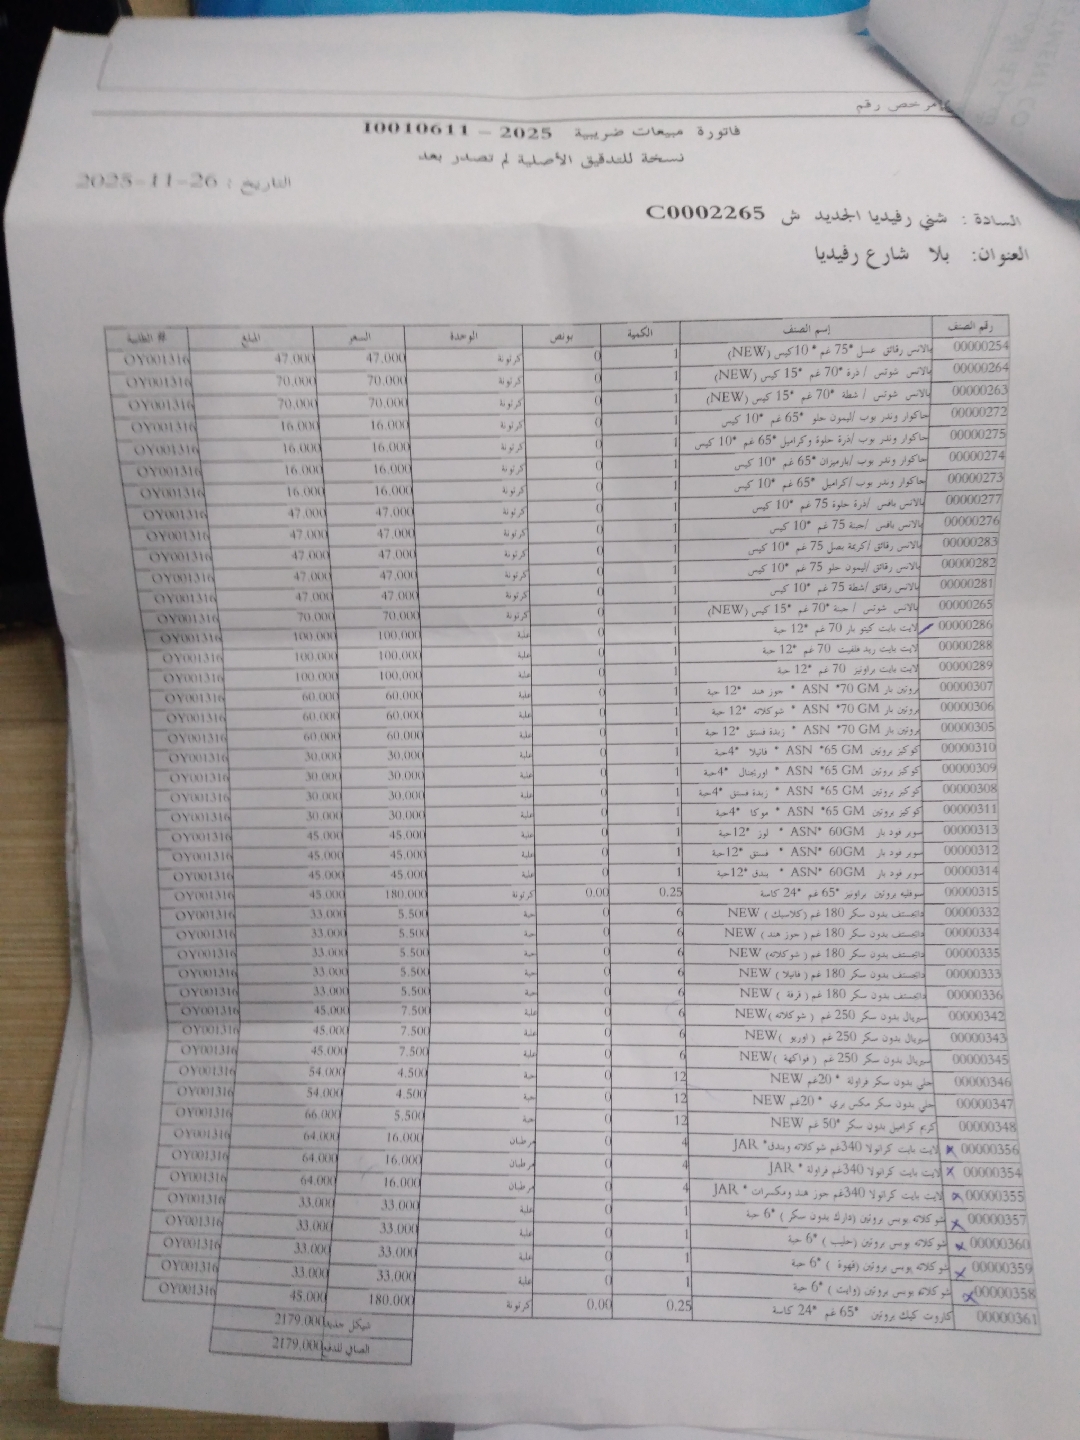 مرخص رقم
فاتورة مبيعات ضريبية 2025 - I0010611
نسخة للتدقيق الأصلية لم تصدر بعد
التاريخ : 26-11-2025
السادة : شني رفيديا الجديد ش C0002265
العنوان: بلا شارع رفيديا
رقم الصنف إسم الصنف الكمية بونص الوحدة السعر المبلغ # الطلبية
00000254 بالانس رقائق عسل *75 غم *10كيس (NEW) 1 0 كرتونة 47.000 47.000 OY001316
00000264 بالانس شوتس / ذرة *70 غم *15 كيس (NEW) 1 0 كرتونة 70.000 70.000 OY001316
00000263 بالانس شوتس / شطة *70 غم *15 كيس (NEW) 1 0 كرتونة 70.000 70.000 OY001316
00000272 جاكوار وندر بوب /ليمون حلو *65 غم *10 كيس 1 0 كرتونة 16.000 16.000 OY001316
00000275 جاكوار وندر بوب /ذرة حلوة وكراميل *65 غم *10 كيس 1 0 كرتونة 16.000 16.000 OY001316
00000274 جاكوار وندر بوب /بارميزان *65 غم *10 كيس 1 0 كرتونة 16.000 16.000 OY001316
00000273 جاكوار وندر بوب /كراميل *65 غم *10 كيس 1 0 كرتونة 16.000 16.000 OY001316
00000277 بالانس بافس /ذرة حلوة 75 غم *10 كيس 1 0 كرتونة 47.000 47.000 OY001316
00000276 بالانس بافس /جبنة 75 غم *10 كيس 1 0 كرتونة 47.000 47.000 OY001316
00000283 بالانس رقائق /كريمة بصل 75 غم *10 كيس 1 0 كرتونة 47.000 47.000 OY001316
00000282 بالانس رقائق /ليمون حلو 75 غم *10 كيس 1 0 كرتونة 47.000 47.000 OY001316
00000281 بالانس رقائق /شطة 75 غم *10 كيس 1 0 كرتونة 47.000 47.000 OY001316
00000265 بالانس شوتس / جبنة *70 غم *15 كيس (NEW) 1 0 كرتونة 70.000 70.000 OY001316
00000286 لايت بايت كيتو بار 70 غم *12 حبة 1 0 علبة 100.000 100.000 OY001316
00000288 لايت بايت ريد فلفيت 70 غم *12 حبة 1 0 علبة 100.000 100.000 OY001316
00000289 لايت بايت براونيز 70 غم *12 حبة 1 0 علبة 100.000 100.000 OY001316
00000307 بروتين بار ASN *70 GM * جوز هند *12 حبة 1 0 علبة 60.000 60.000 OY001316
00000306 بروتين بار ASN *70 GM * شوكلاته *12 حبة 1 0 علبة 60.000 60.000 OY001316
00000305 بروتين بار ASN *70 GM * زبدة فستق *12 حبة 1 0 علبة 60.000 60.000 OY001316
00000310 كوكيز بروتين ASN *65 GM * فانيلا *4حبة 1 0 علبة 30.000 30.000 OY001316
00000309 كوكيز بروتين ASN *65 GM * اورجنال *4حبة 1 0 علبة 30.000 30.000 OY001316
00000308 كوكيز بروتين ASN *65 GM * زبدة فستق *4حبة 1 0 علبة 30.000 30.000 OY001316
00000311 كوكيز بروتين ASN *65 GM * موكا *4حبة 1 0 علبة 30.000 30.000 OY001316
00000313 سوبر فود بار ASN* 60GM * لوز *12حبة 1 0 علبة 45.000 45.000 OY001316
00000312 سوبر فود بار ASN* 60GM * فستق *12حبة 1 0 علبة 45.000 45.000 OY001316
00000314 سوبر فود بار ASN* 60GM * بندق *12حبة 1 0 علبة 45.000 45.000 OY001316
00000315 سوفليه بروتين براونيز *65 غم *24 كاسة 0.25 0.00 كرتونة 180.000 45.000 OY001316
00000332 دايجستف بدون سكر 180 غم (كلاسيك ) NEW 6 0 حبة 5.500 33.000 OY001316
00000334 دايجستف بدون سكر 180 غم ( جوز هند ) NEW 6 0 حبة 5.500 33.000 OY001316
00000335 دايجستف بدون سكر 180 غم ( شوكلاته) NEW 6 0 حبة 5.500 33.000 OY001316
00000333 دايجستف بدون سكر 180 غم ( فانيلا ) NEW 6 0 حبة 5.500 33.000 OY001316
00000336 دايجستف بدون سكر 180 غم ( قرفة ) NEW 6 0 حبة 5.500 33.000 OY001316
00000342 سيريال بدون سكر 250 غم ( شوكلاته )NEW 6 0 علبة 7.500 45.000 OY001316
00000343 سيريال بدون سكر 250 غم ( اوريو )NEW 6 0 علبة 7.500 45.000 OY001316
00000345 سيريال بدون سكر 250 غم ( فواكهة )NEW 6 0 علبة 7.500 45.000 OY001316
00000346 جلي بدون سكر فراولة * 20غم NEW 12 0 حبة 4.500 54.000 OY001316
00000347 جلي بدون سكر مكس بري * 20غم NEW 12 0 حبة 4.500 54.000 OY001316
00000348 كريم كراميل بدون سكر *50 غم NEW 12 0 حبة 5.500 66.000 OY001316
00000356 لايت بايت كرانولا 340غم شوكلاته وبندق* JAR 4 0 مرطبان 16.000 64.000 OY001316
00000354 لايت بايت كرانولا 340غم فراولة * JAR 4 0 مرطبان 16.000 64.000 OY001316
00000355 لايت بايت كرانولا 340غم جوز هند ومكسرات * JAR 4 0 مرطبان 16.000 64.000 OY001316
00000357 شوكلاته بوبس بروتين (دارك بدون سكر ) *6 حبة 1 0 علبة 33.000 33.000 OY001316
00000360 شوكلاته بوبس بروتين (حليب ) *6 حبة 1 0 علبة 33.000 33.000 OY001316
00000359 شوكلاته بوبس بروتين (قهوة ) *6 حبة 1 0 علبة 33.000 33.000 OY001316
00000358 شوكلاته بوبس بروتين (وايت ) *6 حبة 1 0 علبة 33.000 33.000 OY001316
00000361 كاروت كيك بروتين *65 غم *24 كاسة 0.25 0.00 كرتونة 180.000 45.000 OY001316
شيكل جديد 2179.000
الصافي للدفع 2179.000